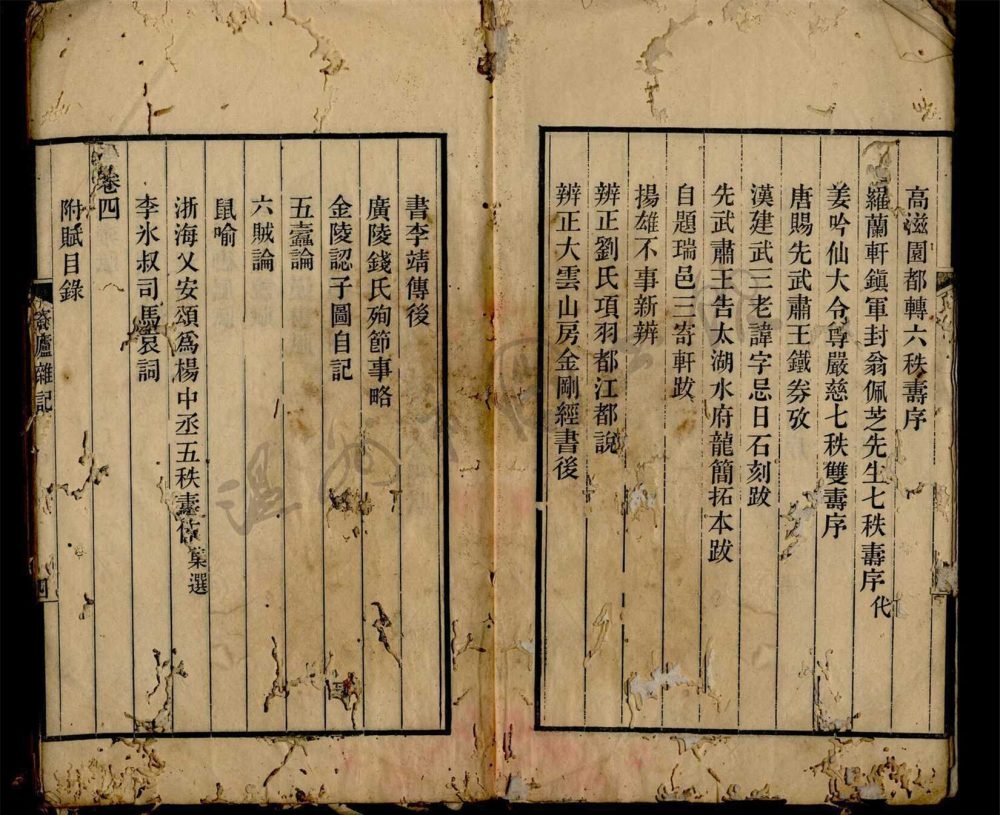 高滋園都轉六秩壽序
羅蘭軒鎭軍封翁佩芝先生七秩壽序代
姜吟仙大令尊嚴慈七秩雙壽序
唐賜先武肅王鐵券攷
漢建武三老諱字忌日石刻跋
先武肅王告太湖水府龍簡拓本跋
自題瑞邑三寄軒跋
揚雄不事新辨
辨正劉氏項羽都江都說
辨正大雲山房金剛經書後
書李靖傳後
廣陵錢氏殉節事略
金陵認子圖自記
五蠹論
六賊論
鼠喻
浙海乂安頌爲楊中丞五秩壽 選
李氷叔司馬哀詞
卷四
附賦目錄
廬雜記
四
溫州市圖